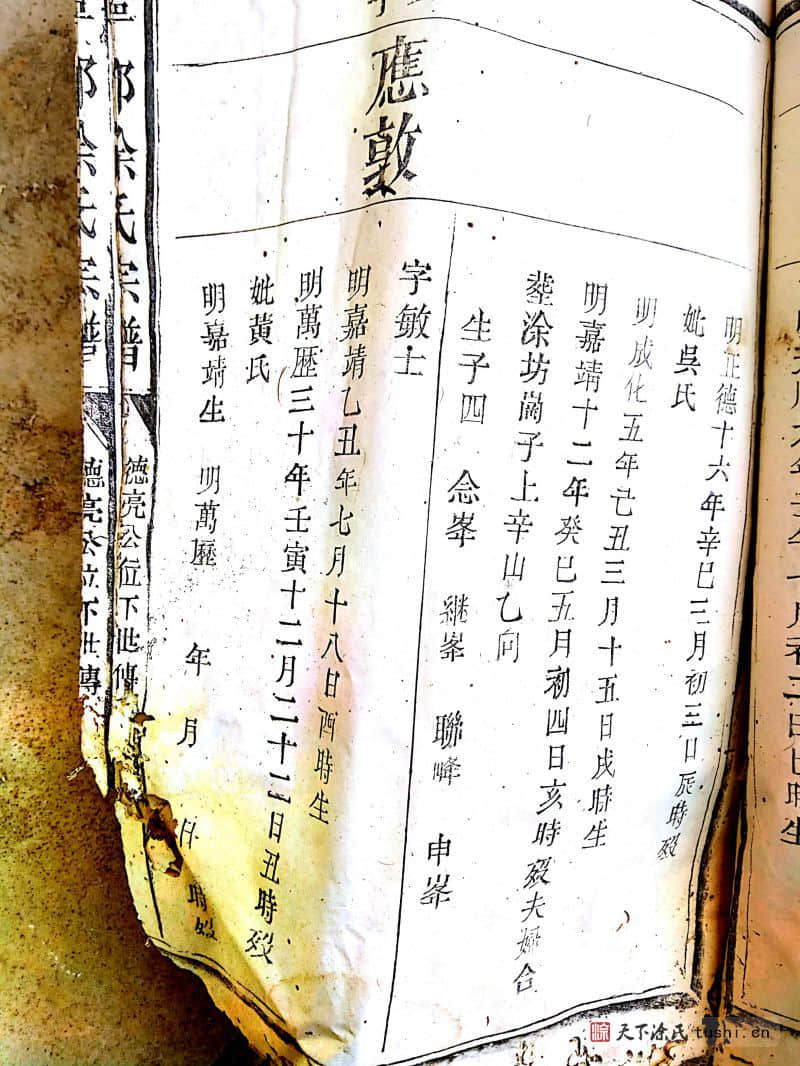 明正德十六年辛巳三月初三日辰時歿
妣吳氏
明成化五年己丑三月十五日戌時生
明嘉靖十二年癸巳五月初四日亥時歿夫婦合
塟涂坊崗子上辛山乙向
生子四 念峯 継峯 聯峰 申峯
應敦
字敏士
明嘉靖乙丑年七月十八日酉時生
明萬歷三十年壬寅十二月二十二日丑時歿
妣黃氏
明嘉靖生 明萬歷 年 月 日 時歿
氏宗譜
德亮公位下世傳
氏宗譜
德亮公位下世傳
天下涂氏 tushi.cn